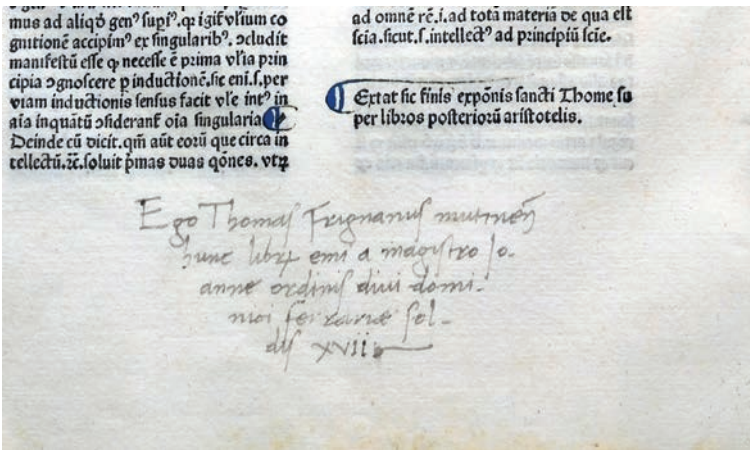 mus ad aliqđ genꝰ supiꝰ.qꝛ igit᷑ vl̃ium co
gnitionē accipimꝰ ex singularibꝰ. ↄcludit
manifestū esse ꝙ necesse ē prima vl̃ia prin
cipia ↄgnoscere p inductionē.sic eni.s.per
viam inductionis sensus facit vl̃e intꝰ in
aīa inquātū ↄsiderant᷑ oīa singularia
Deinde cū dicit.qm̄ aūt eorū que circa in
tellectū.ꝛc̄.soluit pͥmas duas qōnes. vtrꝫ
ad omnē rē.i.ad totā materiā de qua est
scia.sicut.s.intellectꝰ ad principiū scie.
Extat sic finis expōnis sancti Thome su
per libros posteriorū aristotelis.
Ego Thomas Frignanus mutineñ
hunc librꝝ emi a magistro Jo.
anne ordinis diui domi-
nici ferrariæ sol-
dis xvii